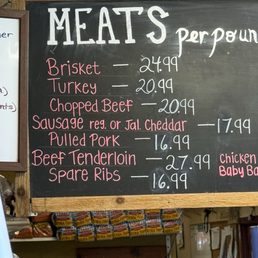 MEATS per poun
Brisket — 24.99
Turkey — 20.99
Chopped Beef — 20.99
Sausage reg. or Jal. Cheddar — 17.99
Pulled Pork — 16.99
Beef Tenderloin — 27.99
Spare Ribs — 16.99
Chicken
Baby Ba